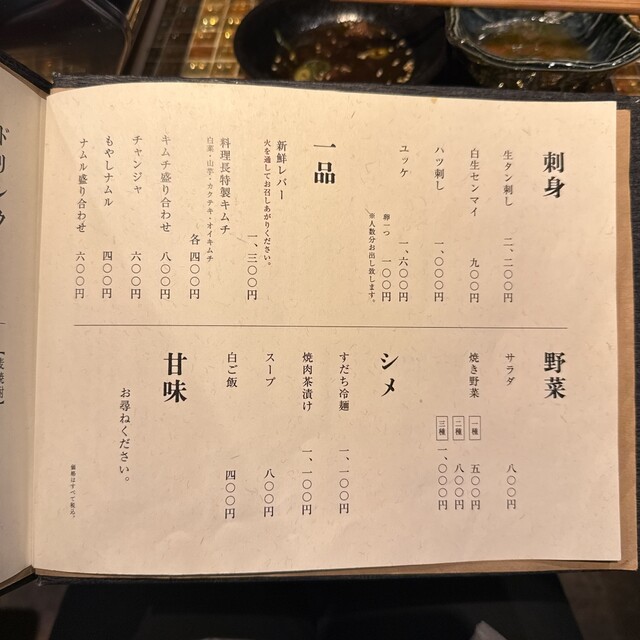 刺身
生タン刺し 二、二〇〇円
白生センマイ 九〇〇円
ハツ刺し 一、〇〇〇円
ユッケ 一、六〇〇円
卵一つ 一〇〇円
※人数分お出し致します。
一品
新鮮レバー 一、三〇〇円
火を通してお召しあがりください。
料理長特製キムチ 各 四〇〇円
白菜・山芋・カクテキ・オイキムチ
キムチ盛り合わせ 八〇〇円
チャンジャ 六〇〇円
もやしナムル 四〇〇円
ナムル盛り合わせ 六〇〇円
野菜
サラダ 八〇〇円
焼き野菜 一種 五〇〇円
二種 八〇〇円
三種 一、〇〇〇円
シメ
すだち冷麺 一、一〇〇円
焼肉茶漬け 一、一〇〇円
スープ 八〇〇円
白ご飯 四〇〇円
甘味
お尋ねください。
価格はすべて税込。
ドリンク